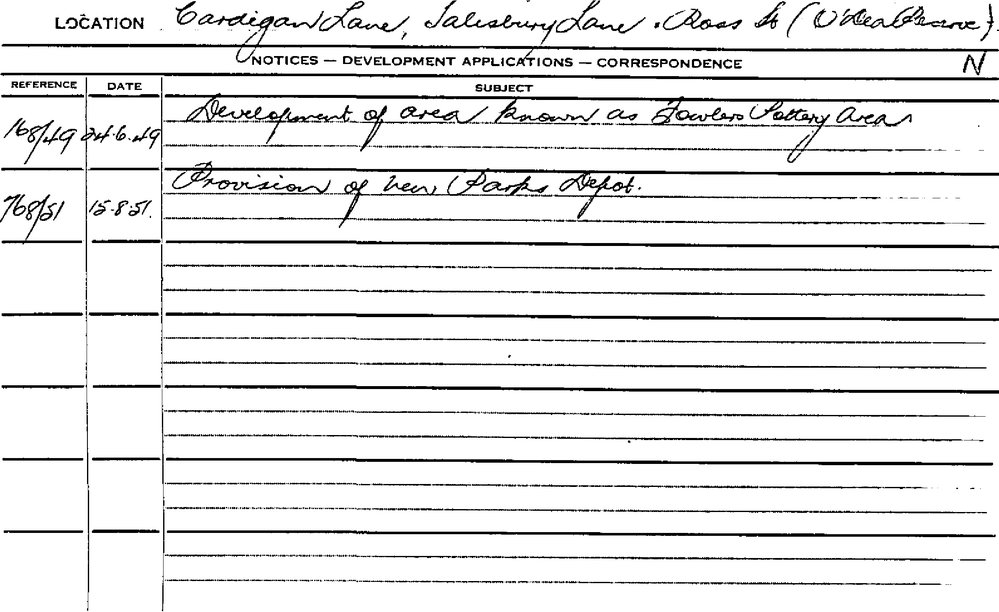 LOCATION Cardigan Lane, Salesbury Lane . Ross St (O'Dea Reserve).
NOTICES — DEVELOPMENT APPLICATIONS — CORRESPONDENCE N
REFERENCE DATE SUBJECT
168/49 24·6·49 Development of area known as Fowlers Pottery Area
768/51 15·8·51. Provision of new Parks Depot.